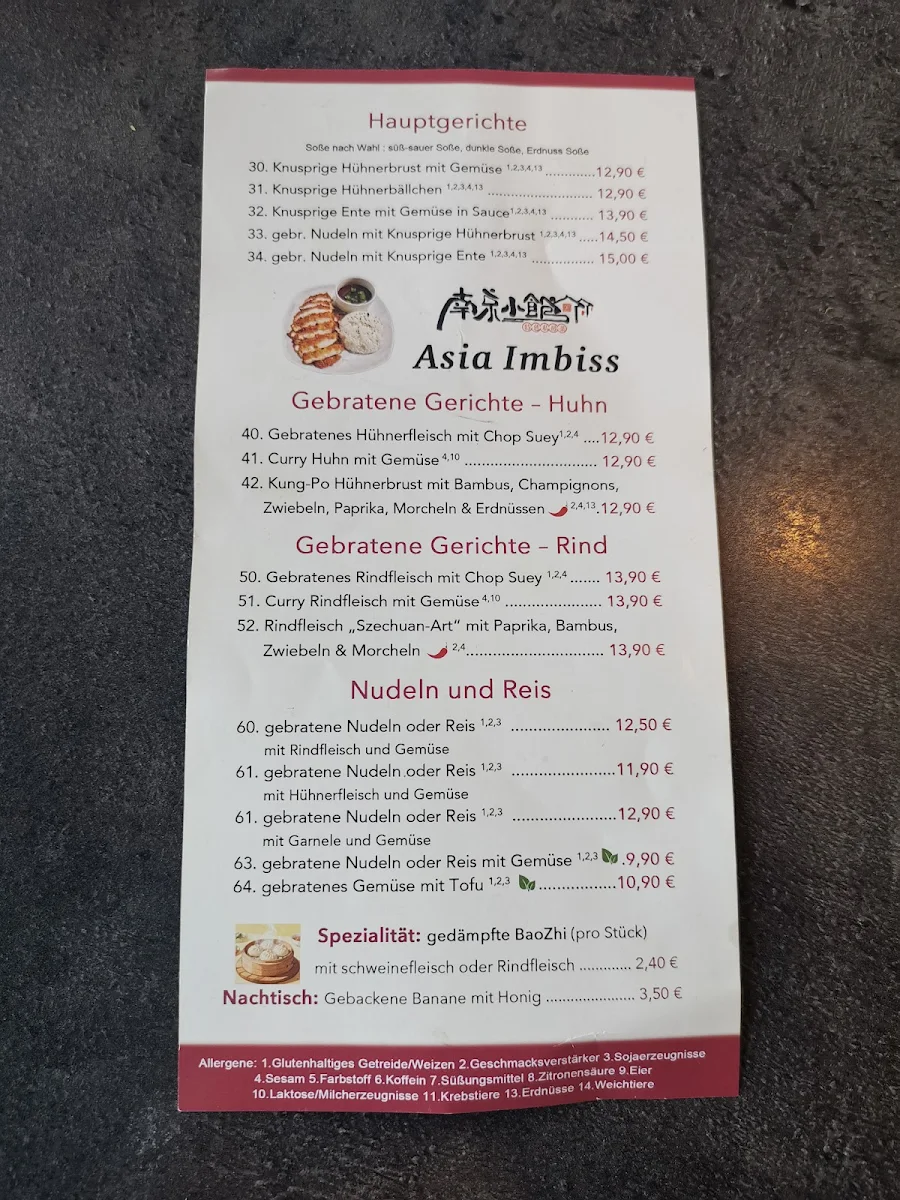 Hauptgerichte
Soße nach Wahl : süß-sauer Soße, dunkle Soße, Erdnuss Soße
30. Knusprige Hühnerbrust mit Gemüse 1,2,3,4,13 .............12,90 €
31. Knusprige Hühnerbällchen 1,2,3,4,13 .......................... 12,90 €
32. Knusprige Ente mit Gemüse in Sauce1,2,3,4,13 ........... 13,90 €
33. gebr. Nudeln mit Knusprige Hühnerbrust 1,2,3,4,13 .....14,50 €
34. gebr. Nudeln mit Knusprige Ente 1,2,3,4,13 ................ 15,00 €
南京小館
Asia Imbiss
Gebratene Gerichte – Huhn
40. Gebratenes Hühnerfleisch mit Chop Suey1,2,4 ....12,90 €
41. Curry Huhn mit Gemüse 4,10 ................................ 12,90 €
42. Kung-Po Hühnerbrust mit Bambus, Champignons,
Zwiebeln, Paprika, Morcheln & Erdnüssen 2,4,13.12,90 €
Gebratene Gerichte – Rind
50. Gebratenes Rindfleisch mit Chop Suey 1,2,4 ....... 13,90 €
51. Curry Rindfleisch mit Gemüse 4,10 ....................... 13,90 €
52. Rindfleisch „Szechuan-Art“ mit Paprika, Bambus,
Zwiebeln & Morcheln 2,4................................. 13,90 €
Nudeln und Reis
60. gebratene Nudeln oder Reis 1,2,3 ........................ 12,50 €
mit Rindfleisch und Gemüse
61. gebratene Nudeln oder Reis 1,2,3 .........................11,90 €
mit Hühnerfleisch und Gemüse
61. gebratene Nudeln oder Reis 1,2,3 .........................12,90 €
mit Garnele und Gemüse
63. gebratene Nudeln oder Reis mit Gemüse 1,2,3 .9,90 €
64. gebratenes Gemüse mit Tofu 1,2,3 ...................10,90 €
Spezialität: gedämpfte BaoZhi (pro Stück)
mit schweinefleisch oder Rindfleisch ............ 2,40 €
Nachtisch: Gebackene Banane mit Honig ..................... 3,50 €
Allergene: 1.Glutenhaltiges Getreide/Weizen 2.Geschmacksverstärker 3.Sojaerzeugnisse
4.Sesam 5.Farbstoff 6.Koffein 7.Süßungsmittel 8.Zitronensäure 9.Eier
10.Laktose/Milcherzeugnisse 11.Krebstiere 13.Erdnüsse 14.Weichtiere